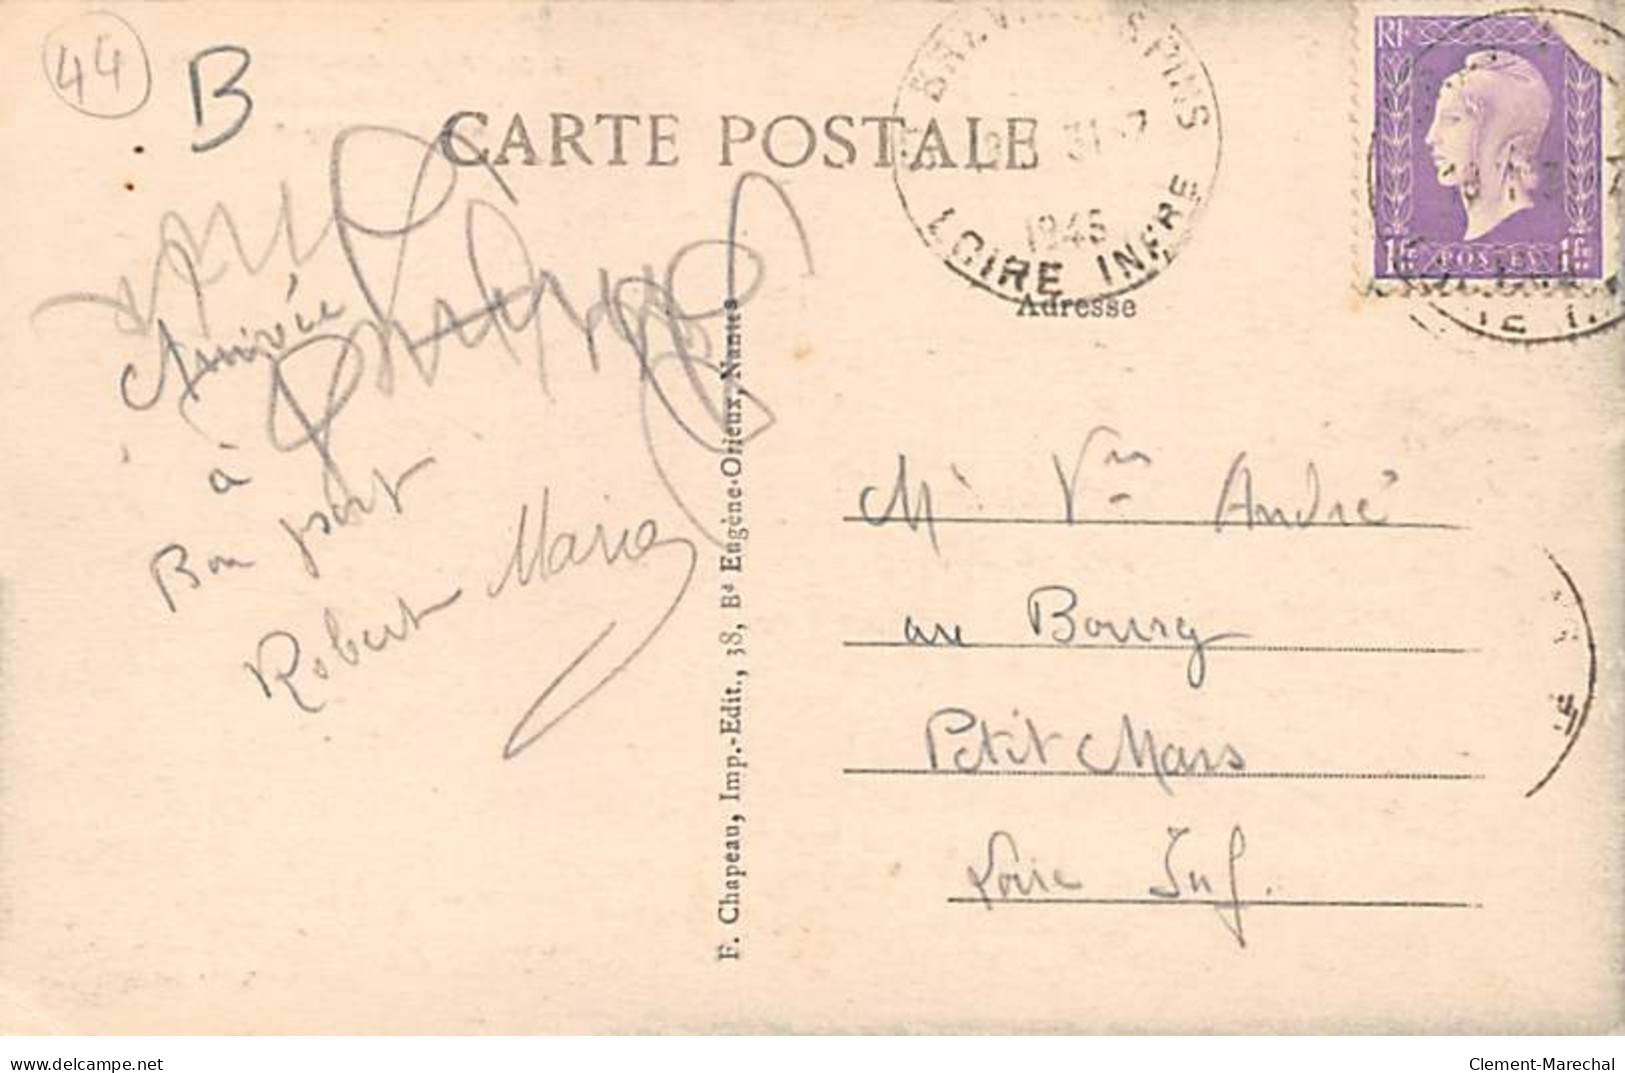 44
B
CARTE POSTALE
LOIRE INFRE
1946
RF
1FR POSTES 1FR
Adresse
Arrivée
à
Bon port
Robert Maria
F. Chapeau, Imp.-Edit., 38, Bd Eugène-Orieux, Nantes
Mr Vve André
au Bourg
Petit Mars
Loire Inf.
delcampe.net
Clement-Marechal